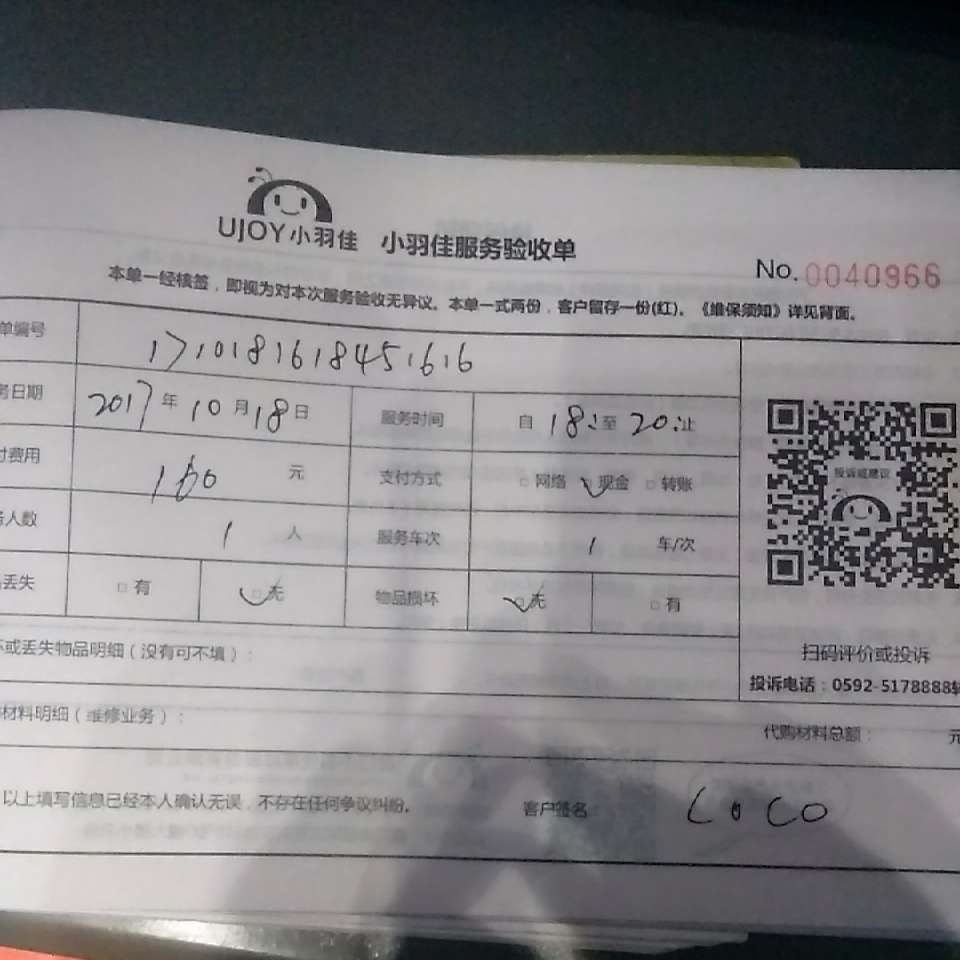 UJOY小羽佳 小羽佳服务验收单
No.0040966
本单一经核签，即视为对本次服务验收无异议。本单一式两份，客户留存一份(红)。《维保须知》详见背面。
单编号 1710181618451616
务日期 2017年10月18日 服务时间 自18:至20:止
付费用 160元 支付方式 □网络 □现金 □转账
务人数 1人 服务车次 1 车/次
丢失 □有 □无 物品损坏 □无 □有
投诉或建议
扫码评价或投诉
投诉电话：0592-5178888转
坏或丢失物品明细（没有可不填）：
材料明细（维修业务）： 代购材料总额： 元
以上填写信息已经本人确认无误，不存在任何争议纠纷。 客户签名 COCO